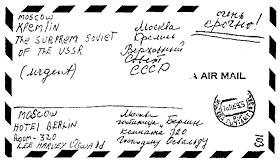 MOSCOW
КРЕМLIN
THE SUPREM SOVIET
OF THE USSR
(Urgent)
Москва
Кремль
Верховный
Совет
СССР
очень
срочно!
AIR MAIL
MOSCOW
HOTEL BERLIN
ROOM-320
LEE HARVEY OSWALD
Москва
гостиница, Берлин
комната 320
Господину Освальду